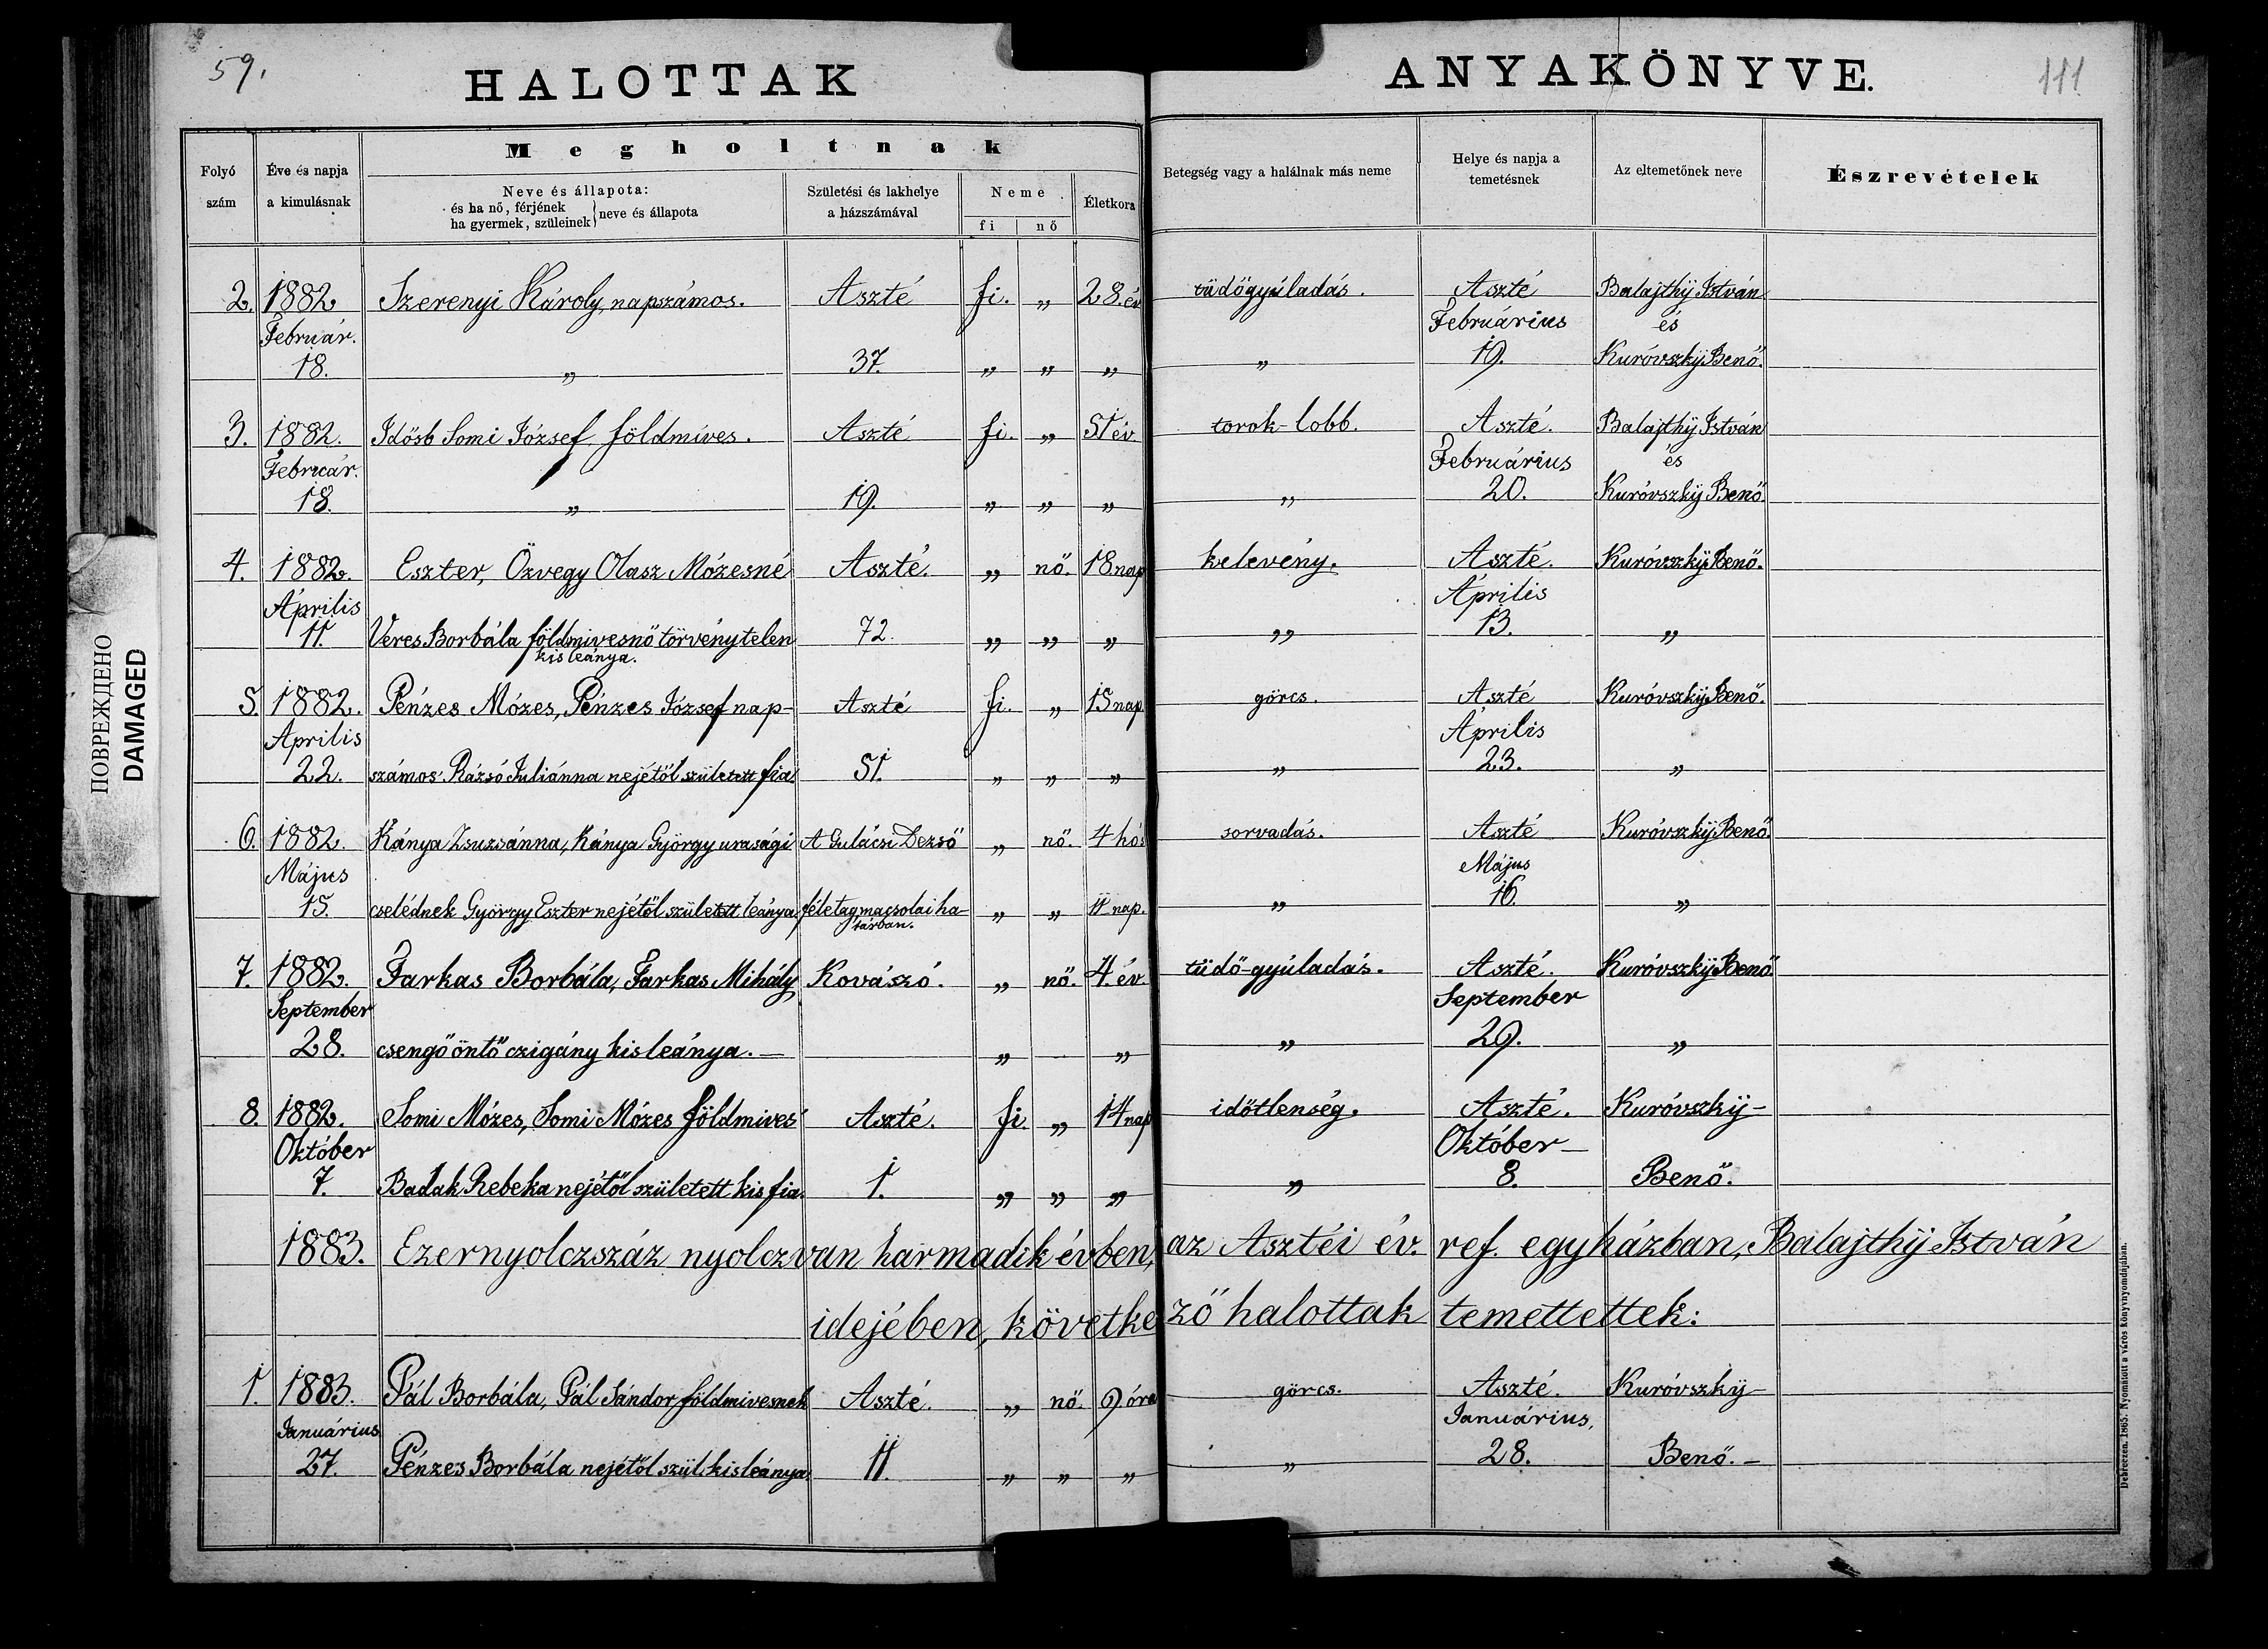 59.
HALOTTAK
ANYAKÖNYVE.
111
Folyó szám
Éve és napja a kimulásnak
Megholtnak
Neve és állapota:
és ha nő, férjének
ha gyermek, szüleinek } neve és állapota
Születési és lakhelye a házszámával
Neme
fi nő
Életkora
Betegség vagy a halálnak más neme
Helye és napja a temetésnek
Az eltemetőnek neve
Észrevételek
2. 1882 Szerenyi Károly, napszámos. Aszté fi. „ 28. év tüdőgyúladás. Aszté Balajthÿ István
Február. Februárius és
18. „ 37. „ „ „ „ 19. Kuróvszkÿ Benő.
3. 1882. Idősb Somi József földmíves. Aszté fi. „ 51 év. torok-lobb. Aszté. Balajthÿ István
Február. Februárius és
18. „ 19. „ „ „ „ 20. Kuróvszkÿ Benő.
4. 1882. Eszter, Özvegy Olasz Mózesné Aszté. „ nő. 18. nap kelevény. Aszté. Kuróvszkÿ Benő.
Április Április
11. Veres Borbála földmivesnő törvénytelen 72. „ „ „ „ 13. „
kis leánya.
5. 1882. Pénzes Mózes, Pénzes József nap- Aszté fi. „ 15 nap. görcs. Aszté Kuróvszkÿ Benő.
Április Április
22. számos Rázsó Juliánna nejétől született fia. 51. „ „ „ „ 23. „
6. 1882. Kánya Zsuzsánna, Kánya György urasági A Gulácsi Dezső „ nő. 4 hó sorvadás. Aszté Kuróvszkÿ Benő.
Május Május
15. cselédnek György Eszter nejétől született leánya. féle tag, macsolai ha- „ „ 11 nap. „ 16. „
tárban.
7. 1882. Farkas Borbála, Farkas Mihály Kovászó. „ nő. 4. év. tüdő-gyúladás. Aszté. Kuróvszkÿ Benő
September September
28. csengő öntő czigány kis leánya. — „ „ „ 29. „
8. 1882. Somi Mózes, Somi Mózes földmives Aszté. fi. „ 14 nap időtlenség. Aszté. Kuróvszkÿ-
Október Október —
7. Badak Rebeka nejétől született kis fia. 1. „ „ „ „ 8. Benő.
1883. Ezernyolczszáz nyolczvan harmadik évben, az Asztéi év. ref. egyházban, Balajthÿ István
idejében, következő halottak temettettek:
1. 1883. Pál Borbála, Pál Sándor földmivesnek Aszté. „ nő. 9. óra görcs. Aszté. Kuróvszkÿ-
Januárius Januárius,
27. Pénzes Borbála nejétől szül. kis leánya. 11. „ „ „ „ 28. Benő. —
ПОВРЕЖДЕНО
DAMAGED
Debreczen. 1865. Nyomatott a város könyvnyomdájában.